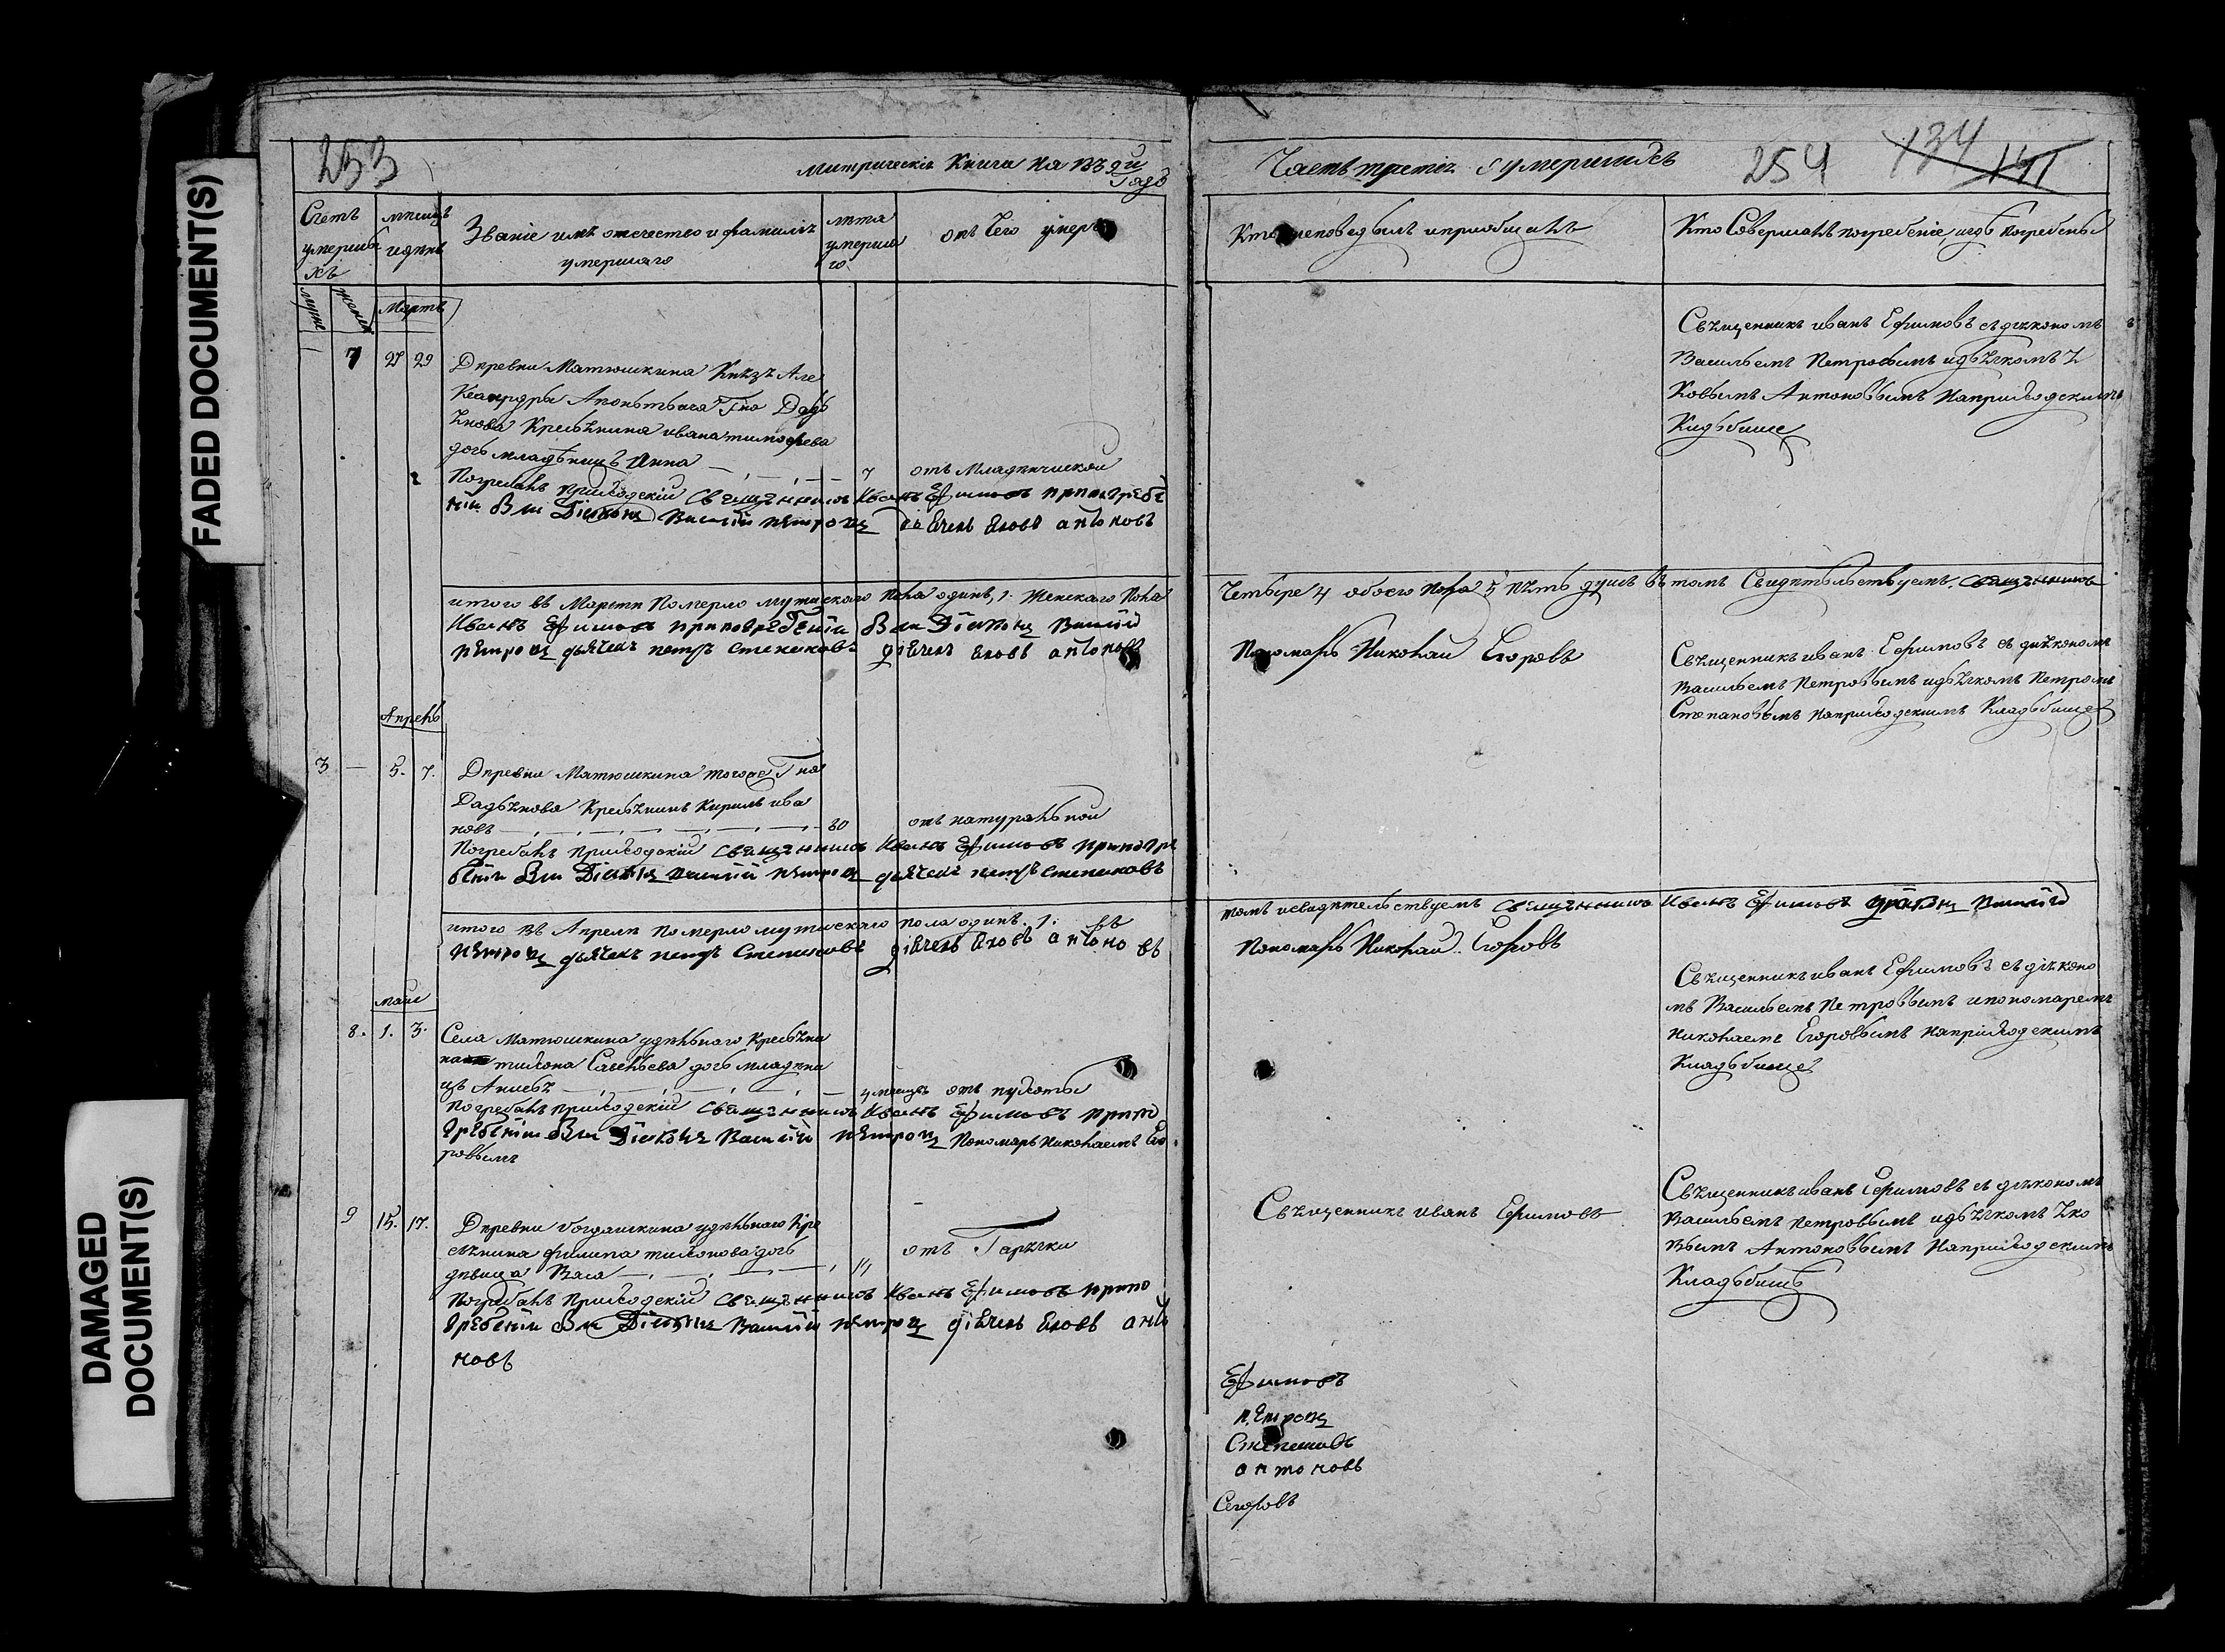 FADED DOCUMENT(S)
DAMAGED
DOCUMENT(S)
253
Митрическія Книга на
Годъ
Счетъ
умерши
хъ
месяцъ
и день
Званіе имя отечество и фамилія
умершаго
лета
умерша
го
отъ чего умеръ
муж
женск
Мартъ
7 27 29 Деревни Матюшкина Князя Але
Ксандры
Крестьянина ивана тимофеева
дочь младенецъ Анна 7 отъ Младенческой
Погребалъ приходскій Священникъ Иванъ Ефимовъ при погребе
ніи были Діаконъ Василій Петровъ дьячекъ Яковъ антоновъ
итого въ Марте Померло мужескаго пола одинъ, 1. Женскаго пола
Иванъ Ефимовъ при погребеніи были Діаконъ Василій
Петровъ дьячекъ петръ степановъ дьячекъ Яковъ антоновъ
Апрель
3 — 5. 7. Деревни Матюшкина того Гна
Дадьянова Крестьянинъ Кирилъ ива
новъ 80 отъ натуральной
Погребалъ приходскій священникъ Иванъ Ефимовъ при погре
беніи были Діаконъ Василій Петровъ дьячекъ петръ степановъ
итого въ Апреле Померло мужескаго пола одинъ. 1. въ
Петровъ дьячекъ петръ Степановъ дьячекъ Яковъ антоновъ
маіи
8. 1. 3. Села Матюшкина удельнаго Крестьяни
на тихона Савельева дочь младене
цъ Анисья отъ
Погребалъ приходскій священникъ Иванъ Ефимовъ при по
гребеніи были Діаконъ Василій Петровъ Пономарь Николаемъ Его
ровымъ
9 15. 17. Деревни богдашкина удельнаго Кре
стьянина филипа тихонова дочь
девица отъ Горячки
Погребалъ приходскій священникъ Иванъ Ефимовъ при по
гребеніи были Діаконъ Василій Петровъ дьячекъ Яковъ анто
новъ
Часть третія о умершихъ
254 134 141
Кто исповедывалъ и приобщалъ
Кто Совершалъ погребеніе, и где погребены
Священникъ иванъ Ефимовъ съ діакономъ
Васильемъ Петровымъ и дьячкомъ Я
ковымъ Антоновымъ на приходскимъ
Четыре 4 обоего пола 5 пять душъ въ томъ Свидетельствуемъ. священникъ
Пономарь Николай Егоровъ
Священникъ иванъ Ефимовъ съ діакономъ
Васильемъ Петровымъ и дьячкомъ Петромъ
Степановымъ на приходскимъ Кладьбище
томъ и свидетельствуемъ священникъ Иванъ Ефимовъ діаконъ Василій
Пономарь Николай Егоровъ
Священникъ иванъ Ефимовъ съ діаконо
мъ Васильемъ Петровымъ и пономаремъ
Николаемъ Егоровымъ на приходскимъ
Кладьбище
Священникъ иванъ Ефимовъ
Священникъ иванъ Ефимовъ съ діакономъ
Васильемъ Петровымъ и дьячкомъ Яко
вымъ Антоновымъ на приходскимъ
Кладьбище
Ефимовъ
Петровъ
Степановъ
антоновъ
Егоровъ